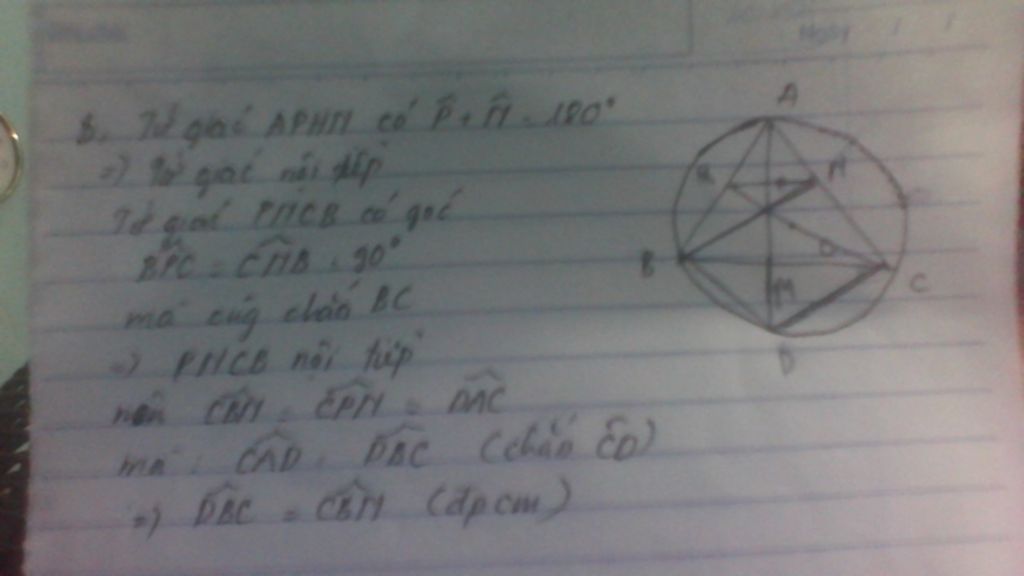 Ngày / /
B. Tứ giác APHM có P̂ + M̂ = 180°
=) Tứ giác nội tiếp
Tứ giác PMCB có góc
BPC = CMB = 90°
mà cùng chắn BC
=) PMCB nội tiếp
nên CBM = CPM = DAC
mà: CAD = DBC (chắn CD)
=) DBC = CBM (đpcm)
A
M
B
C
M
D